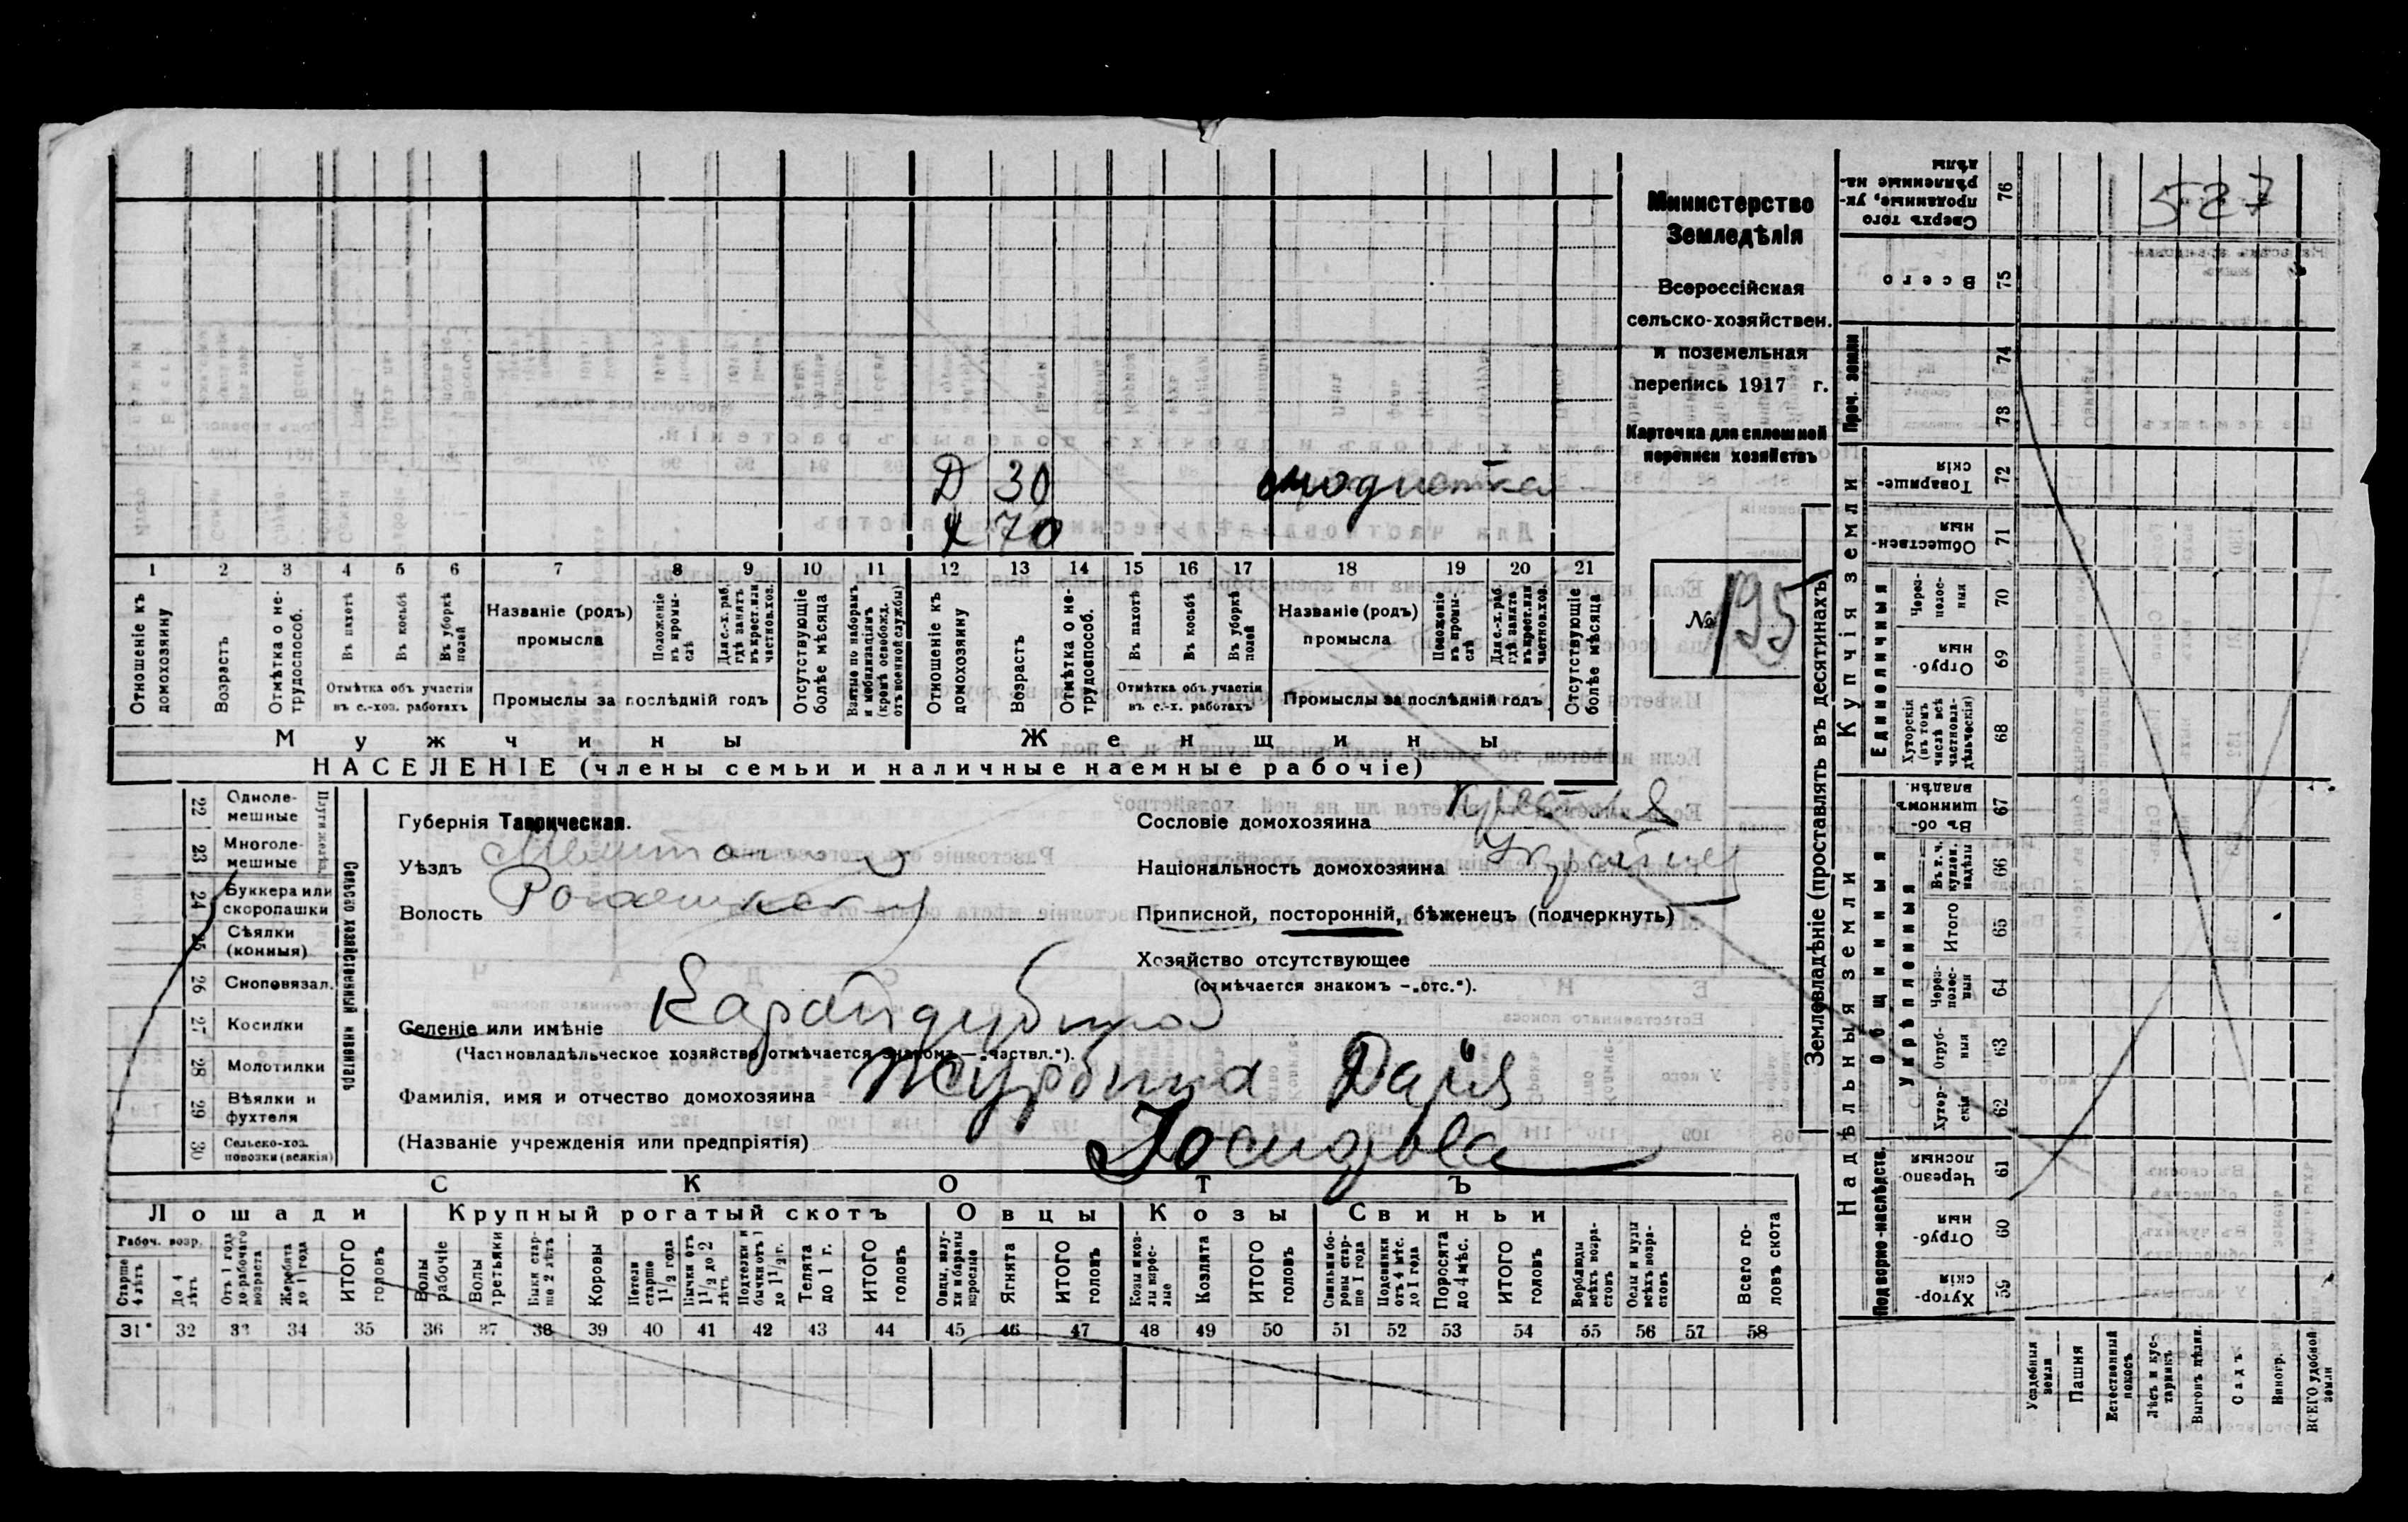 527
Министерство
Земледѣлія
Всероссійская
сельско-хозяйствен.
и поземельная
перепись 1917 г.
Карточка для сплошной
переписи хозяйствъ
№ 195
Д 30 модистка
Х 70
1 2 3 4 5 6 7 8 9 10 11 12 13 14 15 16 17 18 19 20 21
Отношеніе къ домохозяину
Возрастъ
Отмѣтка о не-трудоспособ.
Въ пахотѣ
Въ косьбѣ
Въ уборкѣ полей
Отмѣтка объ участіи въ с.-хоз. работахъ
Названіе (родъ) промысла
Положеніе въ промы-слѣ
Для с.-х. раб. гдѣ занятъ въ крест. или частн. хоз.
Промыслы за послѣдній годъ
Отсутствующіе болѣе мѣсяца
Взятые по наборамъ и мобилизаціямъ (кромѣ освобожд. отъ военной службы)
Отношеніе къ домохозяину
Возрастъ
Отмѣтка о не-трудоспособ.
Въ пахотѣ
Въ косьбѣ
Въ уборкѣ полей
Отмѣтка объ участіи въ с.-х. работахъ
Названіе (родъ) промысла
Положеніе въ промы-слѣ
Для с.-х. раб. гдѣ занята въ крест. или частн. хоз.
Промыслы за послѣдній годъ
Отсутствующіе болѣе мѣсяца
Мужчины Женщины
НАСЕЛЕНІЕ (члены семьи и наличные наемные рабочіе)
Сельско хозяйственный инвентарь
22 Одноле-мешные
23 Многоле-мешные
24 Буккера или скоропашки
25 Сѣялки (конныя)
26 Сноповязал.
27 Косилки
28 Молотилки
29 Вѣялки и фухтеля
30 Сельско-хоз. повозки (всякія)
Губернія Таврическая.
Уѣздъ
Волость
Селеніе или имѣніе
(Частновладѣльческое хозяйство отмѣчается знакомъ —„частвл.“).
Фамилія, имя и отчество домохозяина Журбина Дарія
(Названіе учрежденія или предпріятія)
Сословіе домохозяина
Національность домохозяина
Приписной, посторонній, бѣженецъ (подчеркнуть)
Хозяйство отсутствующее
(отмѣчается знакомъ —„отс.“).
СКОТЪ
Лошади Крупный рогатый скотъ Овцы Козы Свиньи
Рабоч. возр.
Старше 4 лѣтъ
До 4 лѣтъ
Отъ 1 года до рабочаго возраста
Жеребята до 1 года
ИТОГО головъ
Волы рабочіе
Волы третьяки
Быки стар-ше 2 лѣтъ
Коровы
Нетели старше 1½ года
Бычки отъ 1½ до 2 лѣтъ
Подтелки и бычки отъ 1 до 1½ г.
Телята до 1 г.
ИТОГО головъ
Овцы, валу-хи и бараны взрослые
Ягнята
ИТОГО головъ
Козы и коз-лы взрос-лые
Козлята
ИТОГО головъ
Свиньи и бо-ровы стар-ше 1 года
Подсвинки отъ 4 мѣс. до 1 года
Поросята до 4 мѣс.
ИТОГО головъ
Верблюды всѣхъ возра-стовъ
Ослы и мулы всѣхъ возра-стовъ
Всего го-ловъ скота
31 32 33 34 35 36 37 38 39 40 41 42 43 44 45 46 47 48 49 50 51 52 53 54 55 56 57 58
Землевладѣніе (проставлять въ десятинахъ)
Сверхъ того проданные, ук-рѣпленные на-дѣлы 76
Всего 75
Проч. земли
74
73
Купчія земли
Товарище-скія 72
Обществен-ныя 71
Единоличныя
Через-полос-ныя 70
Отруб-ныя 69
Хуторскія (въ томъ числѣ всѣ частновла-дѣльческія) 68
Надѣльныя земли
Общинныя
Въ об-щинномъ владѣн. 67
Укрѣпленныя
Въ т. ч. куплен. надѣлы 66
Итого 65
Через-полос-ныя 64
Отруб-ныя 63
Хутор-скія 62
Подворно-наслѣдств.
Черезпо-лосныя 61
Отруб-ныя 60
Хутор-скія 59
Усадебныя земли
Пашня
Естественный покосъ
Лѣсъ и кус-тарникъ
Выгонъ
Садъ
Виногр.
ВСЕГО удобной земли